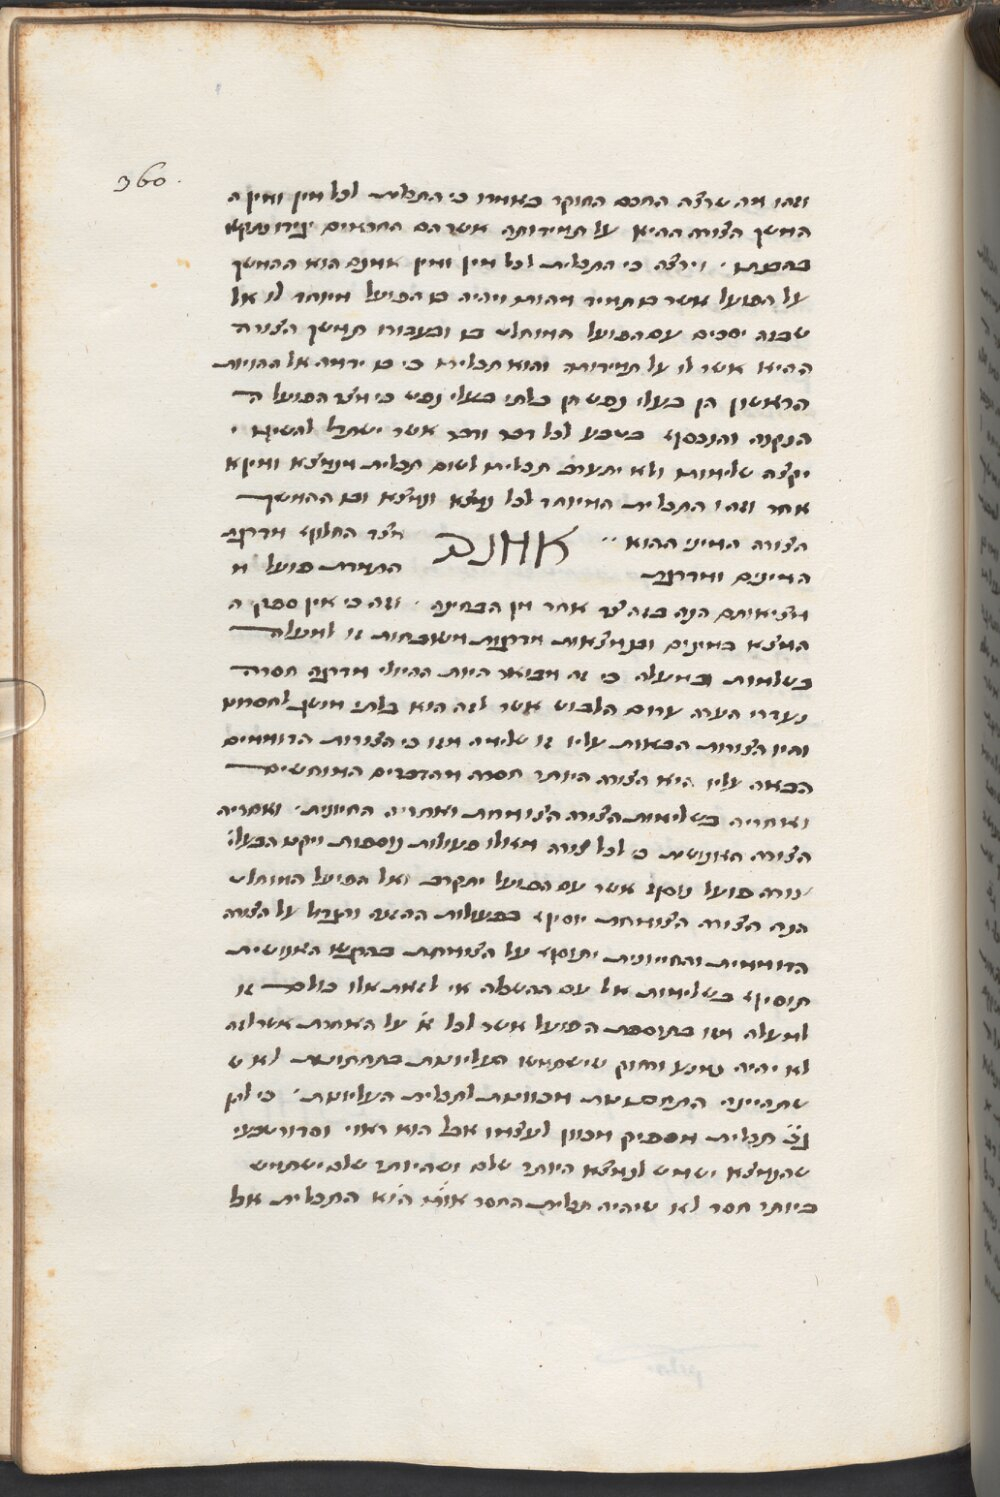 360.
וזהו מה שרצה החכם החוקר באמרו כי התכלית לכל מין ומין ה
המשך הצורה ההיא על תמידותה אשר הם הבוראים
בחכמת . וירצה כי התכלית לכל מין ומין אמנם הוא ההמשך
על הפועל אשר בו תמיד מהות ויהיה בו הפועל מיוחד לו אל
שבזה יסכים עם הפועל המוחלט בו ובעבורו תמשך הצורה
ההיא אשר לו על תמידותה והוא תכליתו כי בו ידמה אל ההויות
הראשון הן בעלי נפש הן בלתי בעלי נפש כי מצד הפועל ה
הנקנה והנכסף בטבע לכל דבר ודבר אשר ישתדל להשיגו י
יקצה שלימותו ולא יתערב תכליתו לשום תכלית מנמצא ומין א
אחר וזהו התכלית המיוחד לכל נמצא ונמצא ובו ההמשך
הצורה המיני ההוא .. אמנם מצד החלוף מדרגת
המינים ומדרגת התמדת פועל מ
מציאותם הנה בזה צד אחר מן הבחינה . וזה כי אין ספק ה
המצא במינים ובנמצאות מדרגות משובחות זו למעלה
בשלמות ובמעלה כי זה מבואר היות ההיולי מדרגה חסרה
נעדרי הערה ערום הלבוש אשר לזה הוא בלתי מושך לחסרונו
והיו הצורות הבאות עליו זו שלימה מזו כי הצורות הדוממים
הבאה עליו היא הצורה היותר חסרה מהדברים המוחשים
ואחריה בשלימות הצורה הצומחת ואחריה החיונית . ואחריה
הצורה האנושית כי לכל צורה מאלו פעולות נוספות ויקנו הבעלי
צורה פועל נוסף אשר עם הפועל יתקרב ואל הפועל המוחלט
הנה הצורה הצומחת יוסיף בפעולות ההזנה והגדול על הצורה
הדוממית והחיונית יתוסף על הצומחת בהרגש והאנושית
תוסיף בשלימות אל עם ההשכלה אי לזאת אלו כולם זו
למעלה מזו בתוספת הפועל אשר לכל א' על האחרת אשר לזה
לא יהיה נמנע ורחוק שישתמשו העליונות בתחתונות לא ש
שתהיינה התחתונות מכוונות לתכלית העליונות . כי להן
ג"כ תכלית מספיק מכוון לעצמו אבל הוא ראוי וסדור טבעי
שהנמצא ישמש לנמצא היותר שלם ושהיותר שלם ישתמש
ביותר חסר לא שיהיה תכלית החסר הוא התכלית אל